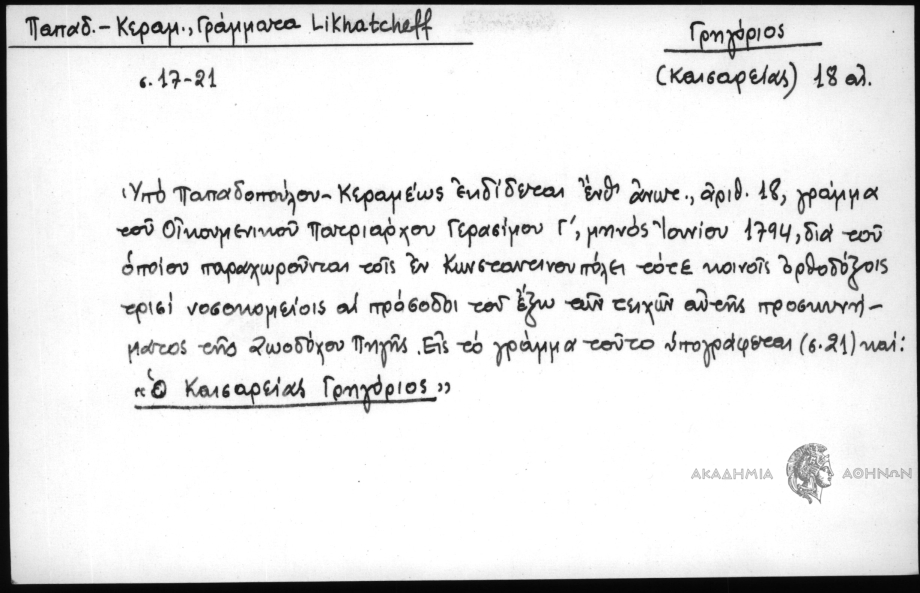 Παπαδ.-Κεραμ., Γράμματα Likhatcheff
Γρηγόριος
σ. 17-21
(Καισαρείας) 18 αἰ.
Ὑπὸ Παπαδοπούλου-Κεραμέως ἐκδίδεται ἔνθ' ἀνωτ., ἀριθ. 18, γράμμα
τοῦ Οἰκουμενικοῦ Πατριάρχου Γερασίμου Γ', μηνὸς Ἰουνίου 1794, διὰ τοῦ
ὁποίου παραχωροῦνται τοῖς ἐν Κωνσταντινουπόλει τότε κοινοῖς ὀρθοδόξοις
τρισὶ νοσοκομείοις αἱ πρόσοδοι τοῦ ἔξω τῶν τειχῶν αὐτῆς προσκυνή-
ματος τῆς Ζωοδόχου Πηγῆς. Εἰς τὸ γράμμα τοῦτο ὑπογράφεται (σ. 21) καί:
«Ὁ Καισαρείας Γρηγόριος»
ΑΚΑΔΗΜΙΑ ΑΘΗΝΩΝ